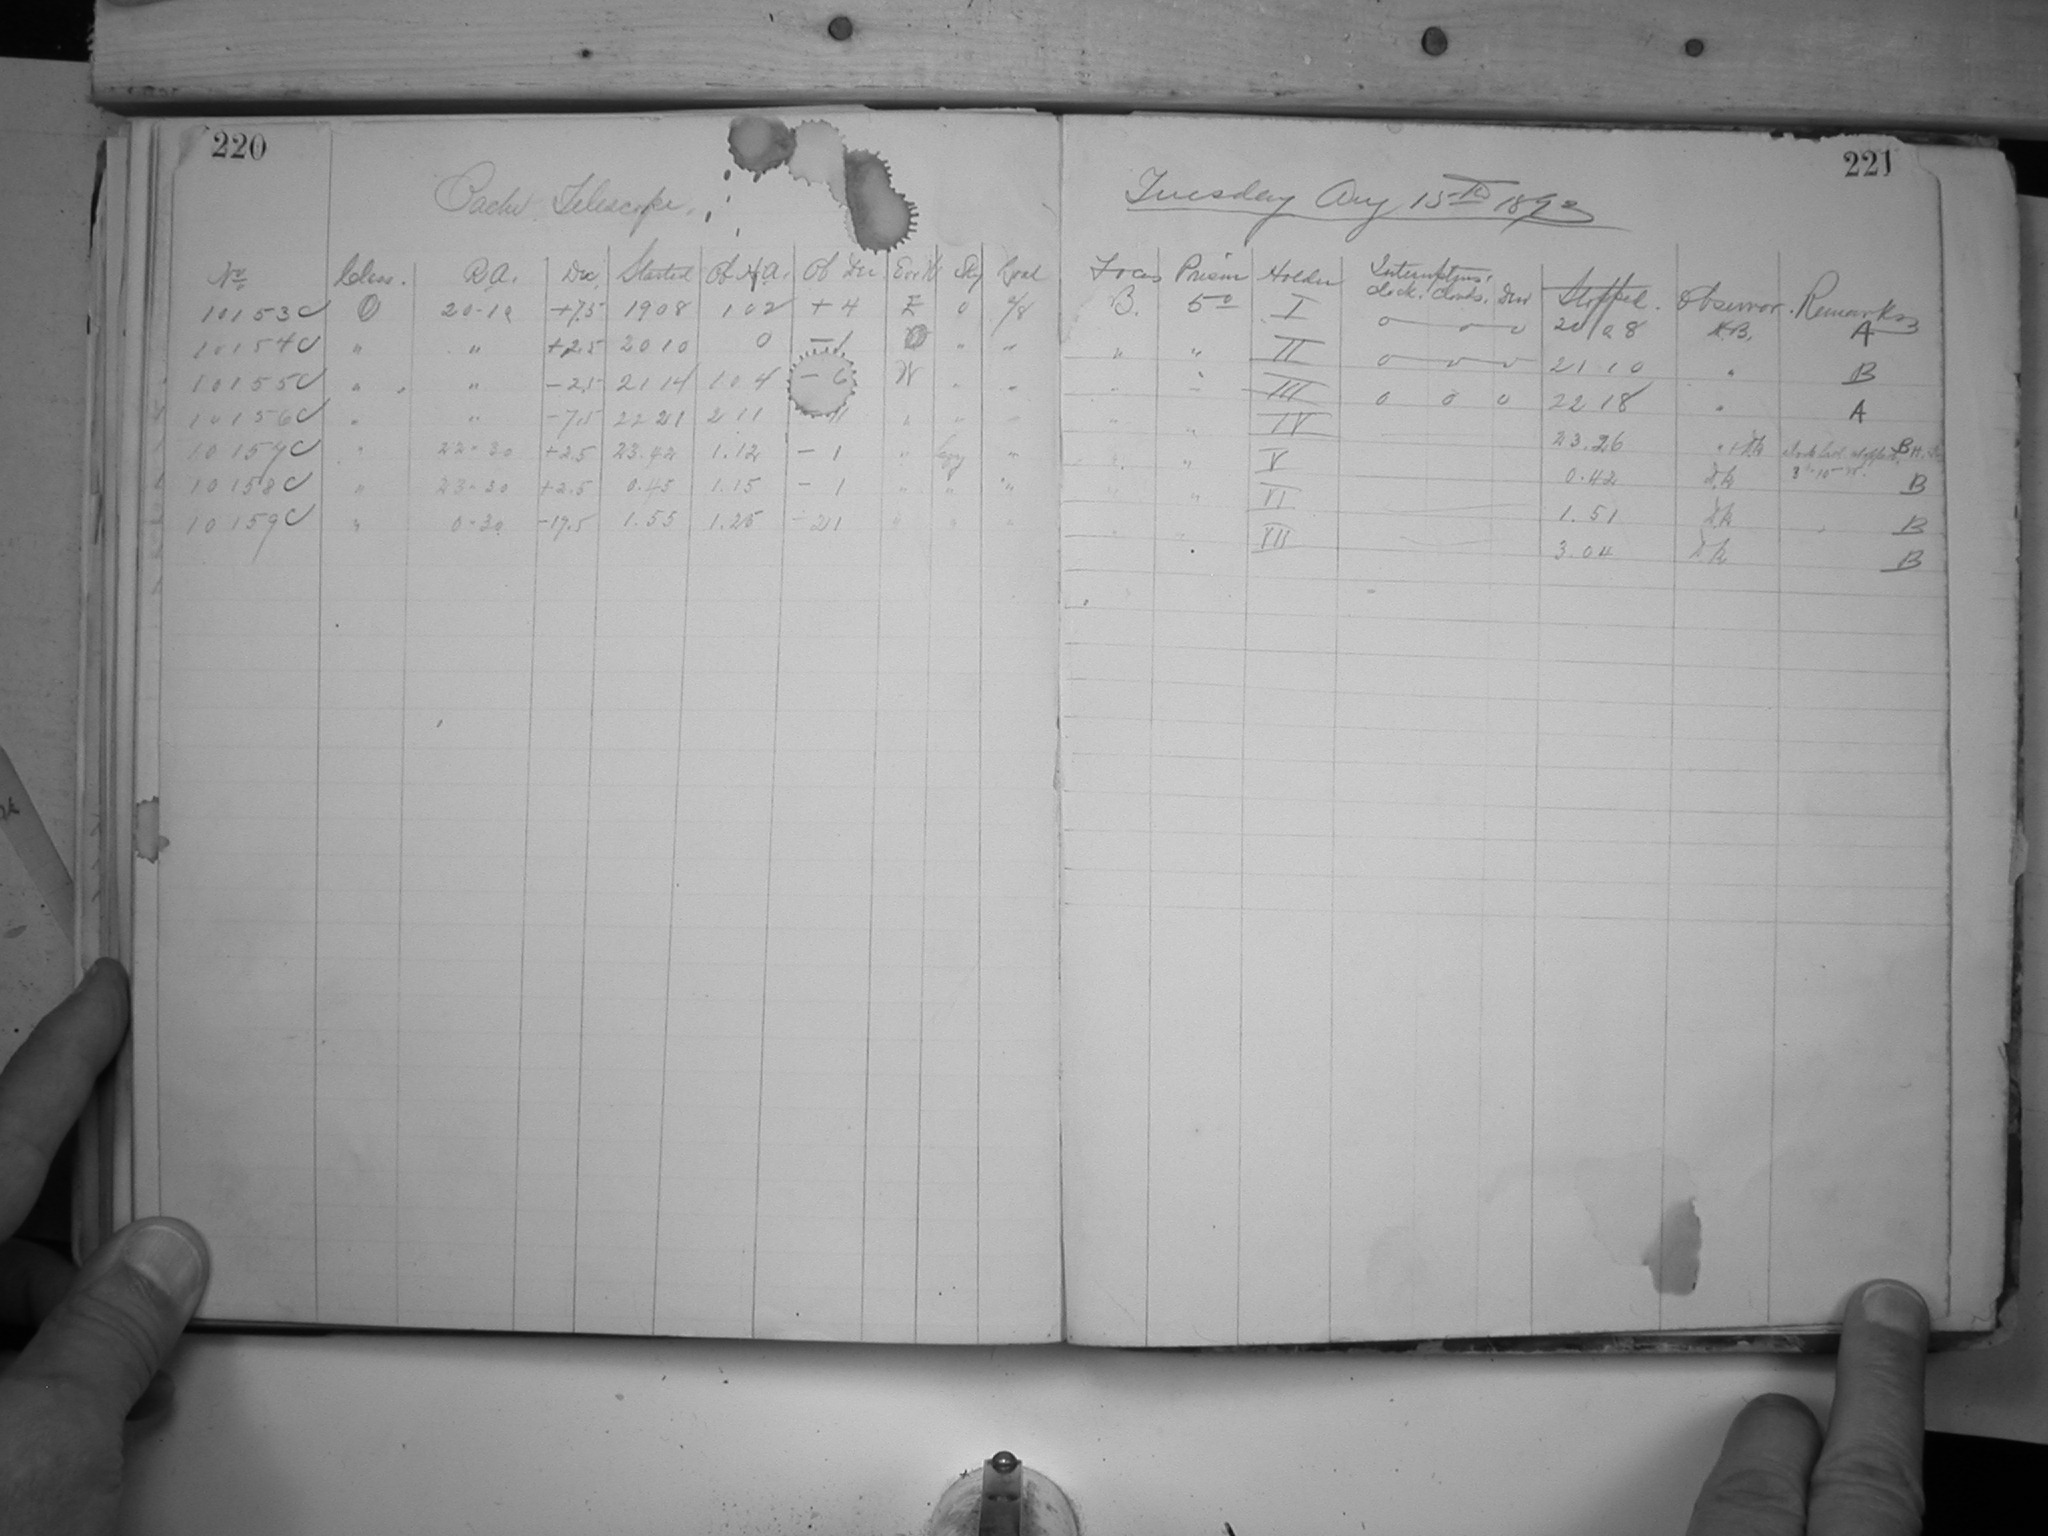 220
Bache Telescope.
No Class. R.A. Dec. Started Ob H.A. Ob Dec. E or W Sky Goal
10153C O 20-10 +7.5 1908 102 +4 E 0 4/8
10154C " " +2.5 2010 0 -1 0 " "
10155C " " -2.5 2114 104 -6 W " "
10156C " " -7.5 2221 211 " " "
10157C " 22-30 +2.5 23.42 1.12 -1 " "
10158C " 23-30 +2.5 0.43 1.15 -1 " " "
10159C " 0-30 -17.5 1.55 1.25 -21 " " "
221
Tuesday Aug 15th 1893
Focus Prism Holder Interruptions. Clock. Clouds. Dew Stopped. Observer. Remarks
B. 5° I 0 0 0 20 08 B. A
" " II 0 0 0 21 10 " B
" " III 0 0 0 22 18 " A
" " IV 23.26 B
" " V 0.42 B
" " VI 1.51 B
" " VII 3.04 B